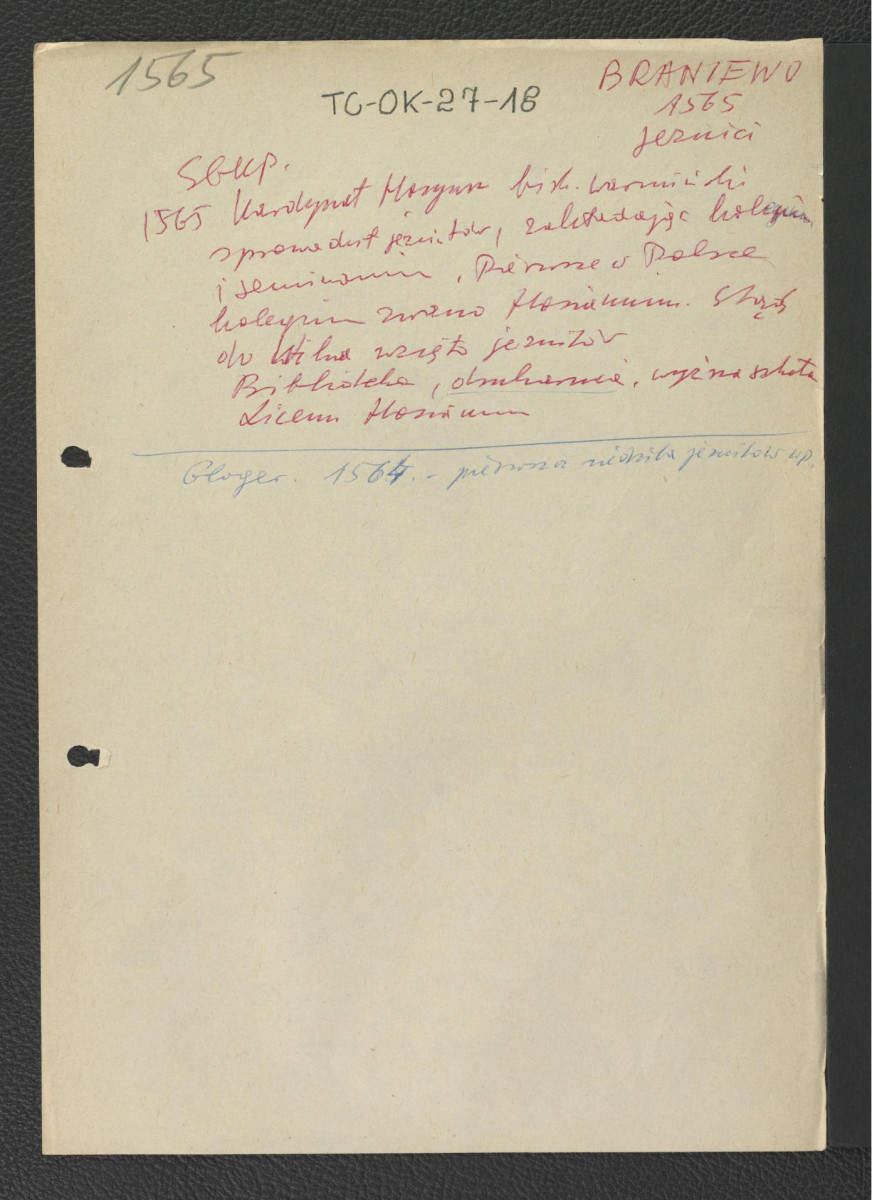 1565
TC-OK-27-18
BRANIEWO
1565
jezuici
SGKP.
1565 Kardynał Hozyusz bisk. warmiński
sprowadził jezuitów, zakładając kolegium
i seminarium, Pierwsze w Polsce
kolegium zwano Hosianum. Stąd
do Wilna wzięto jezuitów
Biblioteka, drukarnia, wyższa szkoła
Liceum Hosianum
Gloger. 1564. - pierwsza siedziba jezuitów wp.